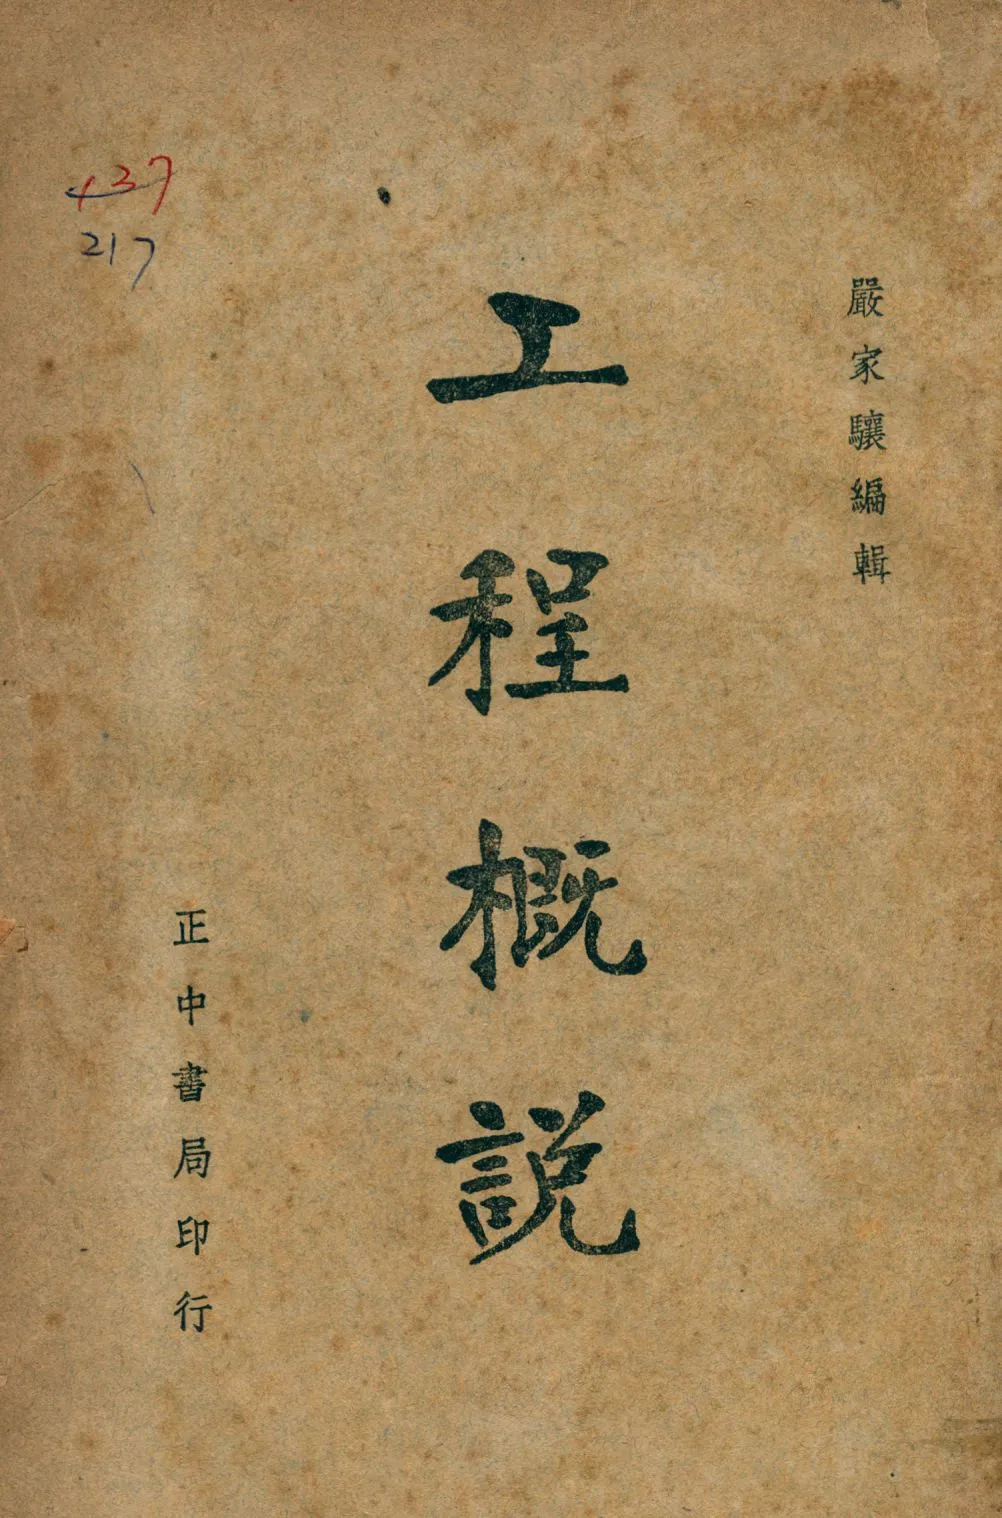 嚴家驤編輯
工程概説
正中書局印行
137
217